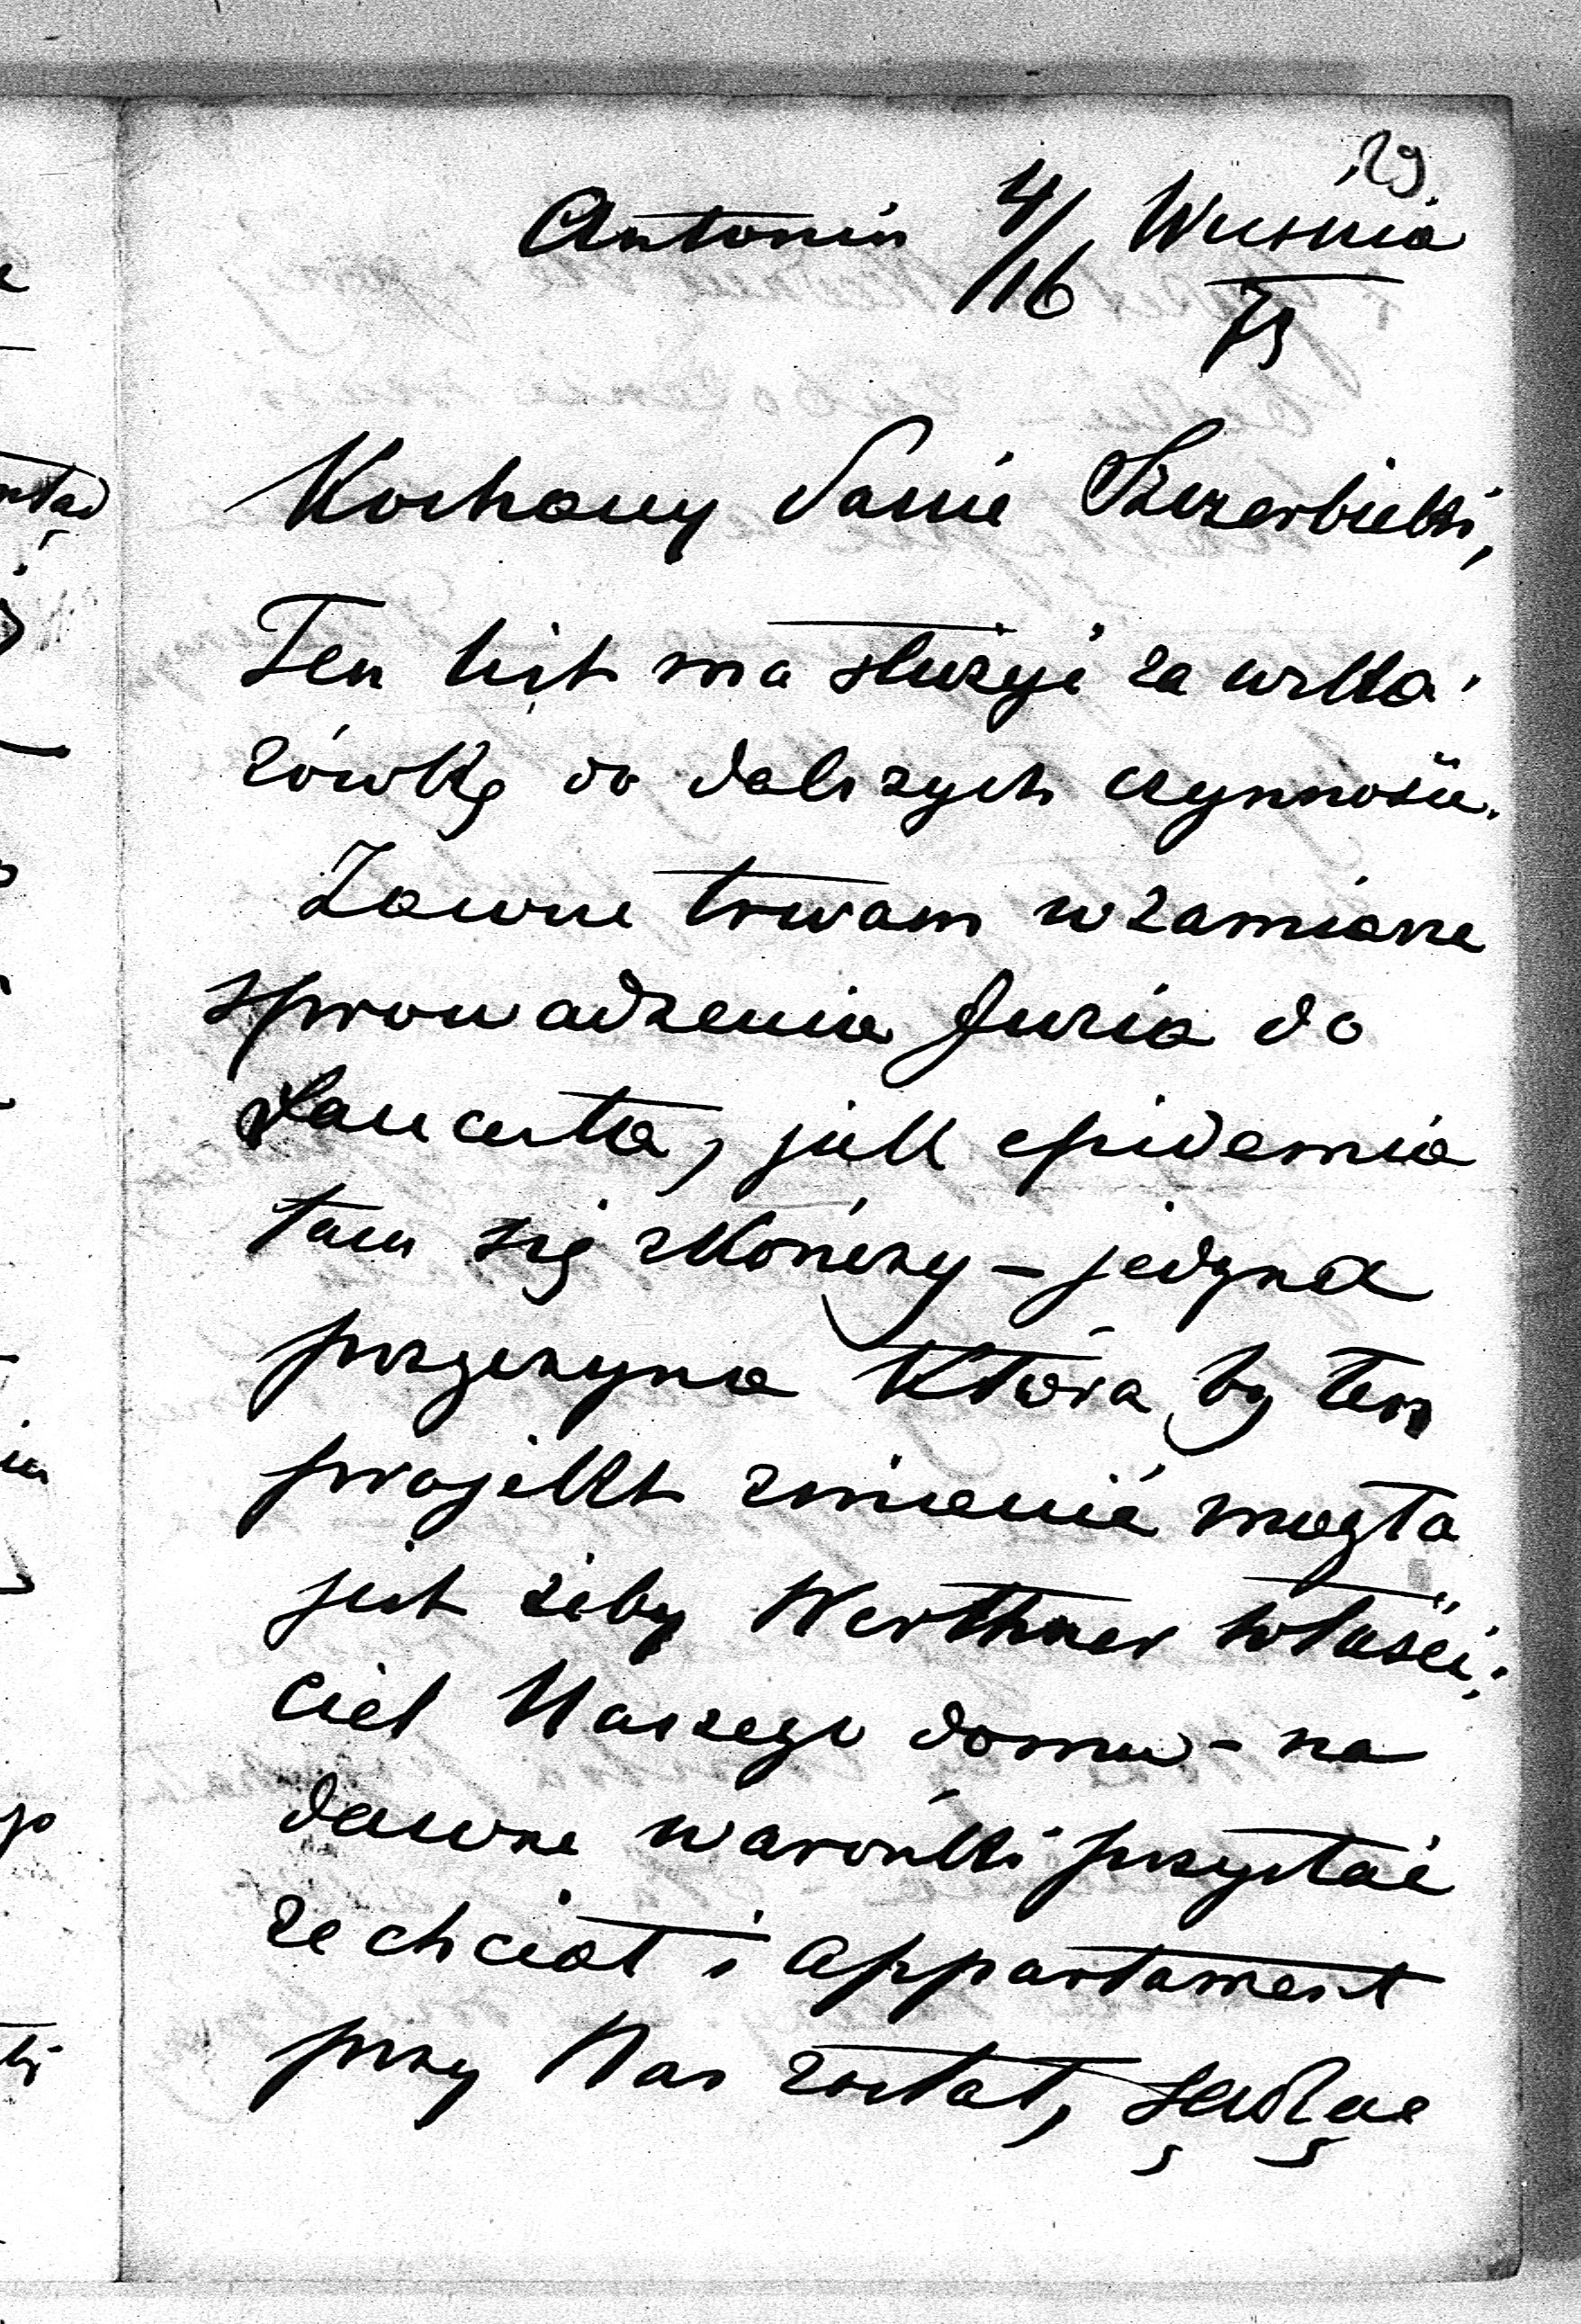 29
Antonin 4/16 Wrsnia
73
Kochany Panie Szczerbicki,
Ten list ma służyć za wska-
zówkę do dalszych czynności.
Zawsze trwam w zamiarze
sprowadzenia Juzia do
Łancuta, jeśli epidemia
tam się skończy – jedyna
przyczyna która by ten
projekt zmienić mogła
jest żeby Werthner właści-
ciel Naszego domu – na
dawne warónki przystać
zechciał i appartament
przy Nas został, sądząc